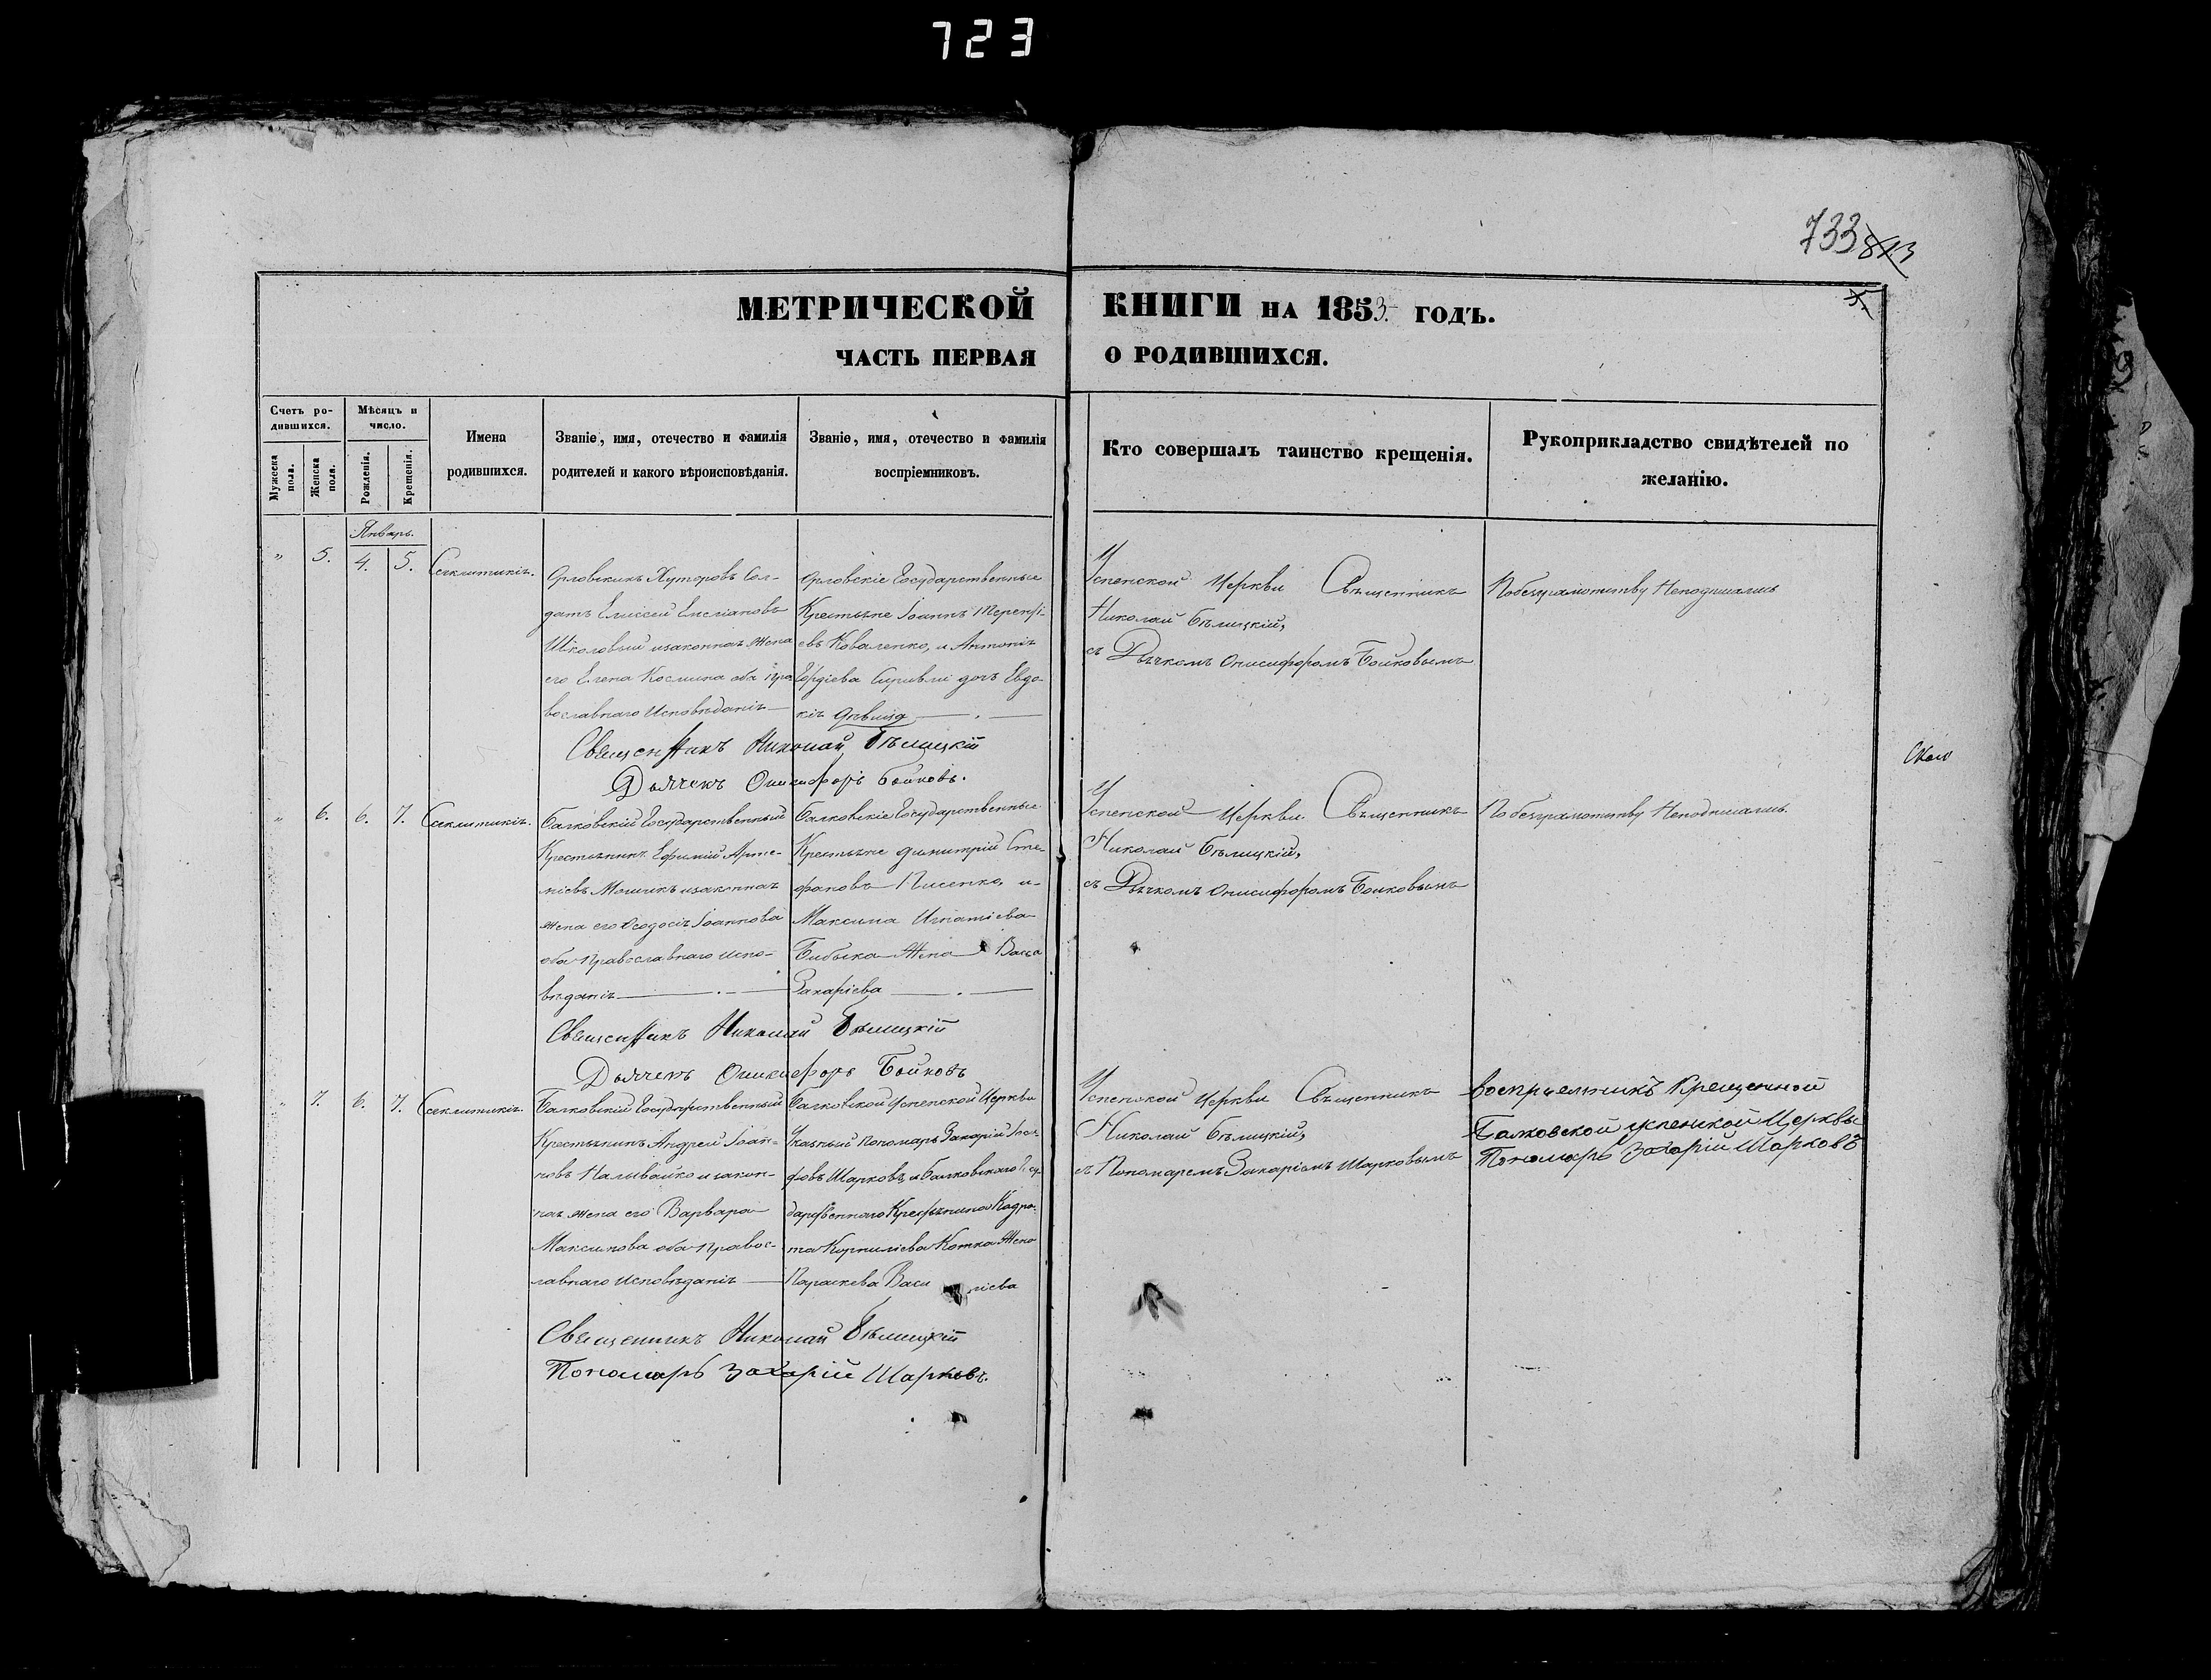 723
733 813
МЕТРИЧЕСКОЙ КНИГИ НА 1853 ГОДЪ.
ЧАСТЬ ПЕРВАЯ О РОДИВШИХСЯ.
Счетъ ро-
дившихся.
Мужеска
пола.
Женска
пола.
Мѣсяцъ и
число.
Рожденія.
Крещенія.
Имена
родившихся.
Званіе, имя, отечество и фамилія
родителей и какого вѣроисповѣданія.
Званіе, имя, отечество и фамилія
воспріемниковъ.
Кто совершалъ таинство крещенія.
Рукоприкладство свидѣтелей по
желанію.
Январь.
„ 5. 4. 5. Сѵнклитикія.
Орловскихъ Хуторовъ Сол-
датъ Елиссей
и законная жена
его Елена Космина оба пра
вославнаго Исповѣданія
Орловскіе Государственные
Крестьяне Іоаннъ Теренті-
евъ Коваленко, и Антонія
дочь Евдо-
кія дѣвица
Успенской Церкви Священникъ
Николай Бѣлицкій,
съ Дьячкомъ Онисифоромъ Бойковымъ
Побезграмотству Неподписались
Священникъ Николай Бѣлицкій
Дьячекъ Онисифоръ Бойковъ.
„ 6. 6. 7. Сѵнклитикія.
Балковскій Государственный
Крестьянинъ Ефимій Арте-
міевъ и законная
жена его Ѳеодосія Іоаннова
оба Православнаго Испо-
вѣданія
Балковскіе Государственные
Крестьяне Димитрій Сте-
фановъ Писенко, и
Максима Игнатіева
Бибыка Жена Васса
Захаріева
Успенской Церкви Священникъ
Николай Бѣлицкій,
съ Дьячкомъ Онисифоромъ Бойковымъ
Побезграмотству Неподписались.
Священникъ Николай Бѣлицкій
Дьячекъ Онисифоръ Бойковъ
„ 7. 6. 7. Сѵнклитикія.
Балковскій Государственный
Крестьянинъ Андрей Іоан-
новъ Наливайко и закон-
ная жена его Варвара
Максимова оба Правос-
лавнаго Исповѣданія
Балковской Успенской Церкви
Указный Пономарь Захарій Іоси-
фовъ Шарковъ, и Балковскаго Госу-
дарственнаго Крестьянина Кодра-
та Корниліева Котка Жена
Параскева Васи ліева
Успенской Церкви Священникъ
Николай Бѣлицкій,
съ Пономаремъ Захаріемъ Шарковымъ
воспріемникъ Крещенной
Балковской успенской Церквы
Пономарь Захарій Шарковъ
Священникъ Николай Бѣлицкій
Пономарь Захарій Шарковъ.